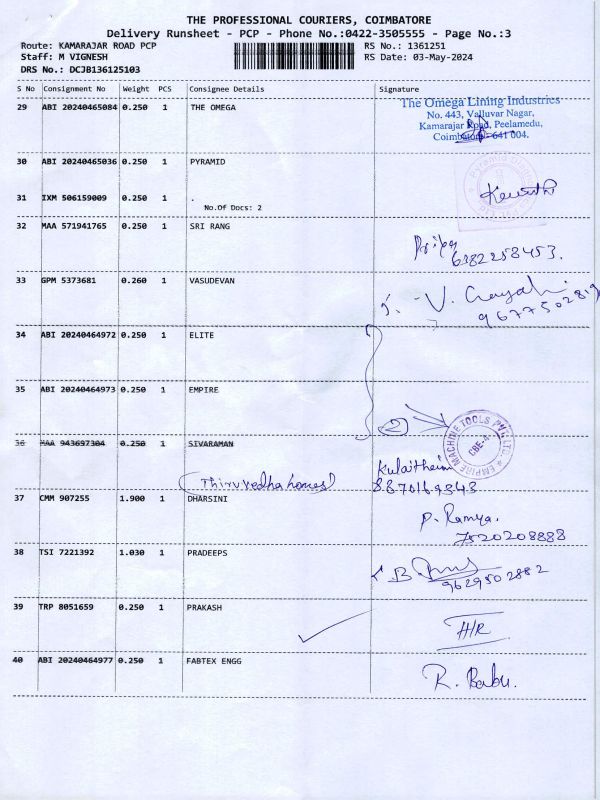 THE PROFESSIONAL COURIERS, COIMBATORE
Delivery Runsheet - PCP - Phone No.:0422-3505555 - Page No.:3
Route: KAMARAJAR ROAD PCP RS No.: 1361251
Staff: M VIGNESH RS Date: 03-May-2024
DRS No.: DCJB136125103
S No Consignment No Weight PCS Consignee Details Signature
29 ABI 20240465084 0.250 1 THE OMEGA
The Omega Lining Industries
No. 443, Valluvar Nagar,
Kamarajar Road, Peelamedu,
Coimbatore - 641 004.
30 ABI 20240465036 0.250 1 PYRAMID
31 IXM 506159009 0.250 1 .
No.Of Docs: 2
32 MAA 571941765 0.250 1 SRI RANG
Priya
6382258453.
33 GPM 5373681 0.260 1 VASUDEVAN
9677502819
34 ABI 20240464972 0.250 1 ELITE
35 ABI 20240464973 0.250 1 EMPIRE
2
EMPIRE MACHINE TOOLS PVT. LTD.
CBE-4
36 MAA 943697304 0.250 1 SIVARAMAN
Thiruvedha homes
8870169343
37 CMM 907255 1.900 1 DHARSINI
P. Ramya.
7520208888
38 TSI 7221392 1.030 1 PRADEEPS
9629502882
39 TRP 8051659 0.250 1 PRAKASH
H/R
40 ABI 20240464977 0.250 1 FABTEX ENGG
R. Babu.